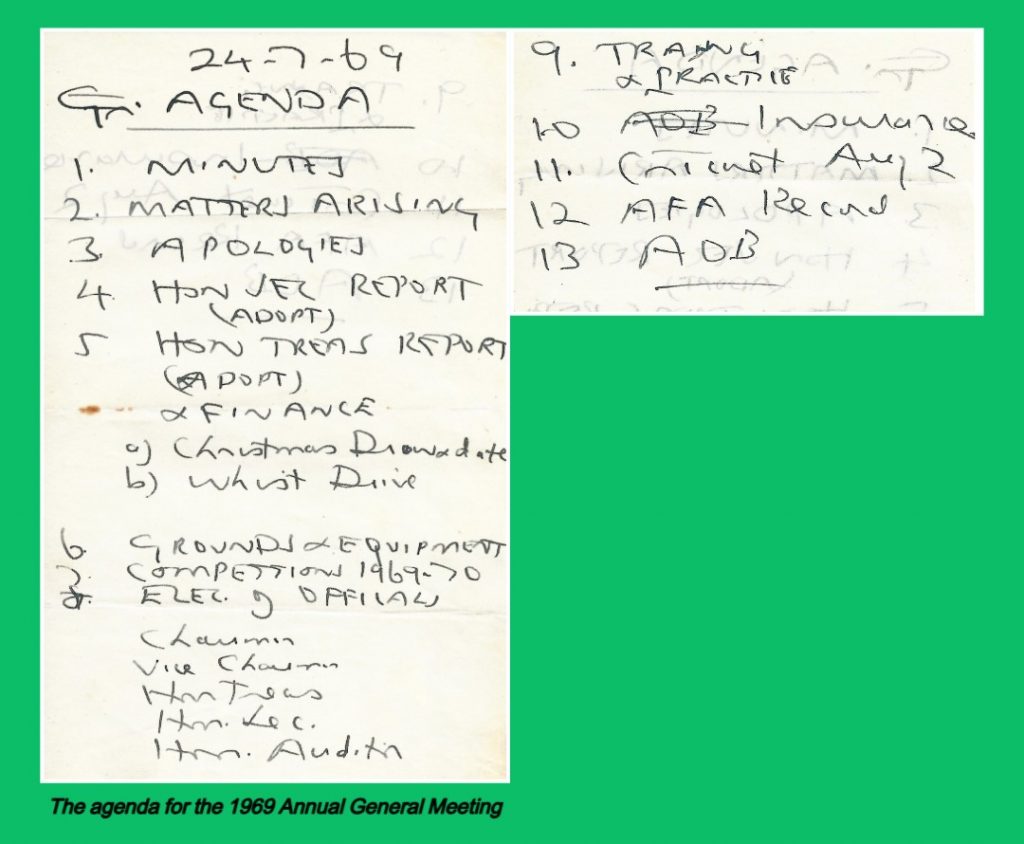 24-7-69
AGENDA
1. MINUTES
2. MATTERS ARISING
3. APOLOGIES
4. HON SEC REPORT
(ADOPT)
5 HON TREAS REPORT
(ADOPT)
& FINANCE
a) Christmas Draw & date
b) Whist Drive
6. GROUNDS & EQUIPMENT
7. COMPETTIONS 1969-70
8. ELEC. OF OFFICALS
Chairman
Vice Chairman
Hon Treas
Hon. Sec.
Hon. Auditor
9. TRAING
& PRACTIE
10 AOB Insurance
11. Cricket Aug 3
12 AFA Records
13 AOB
The agenda for the 1969 Annual General Meeting